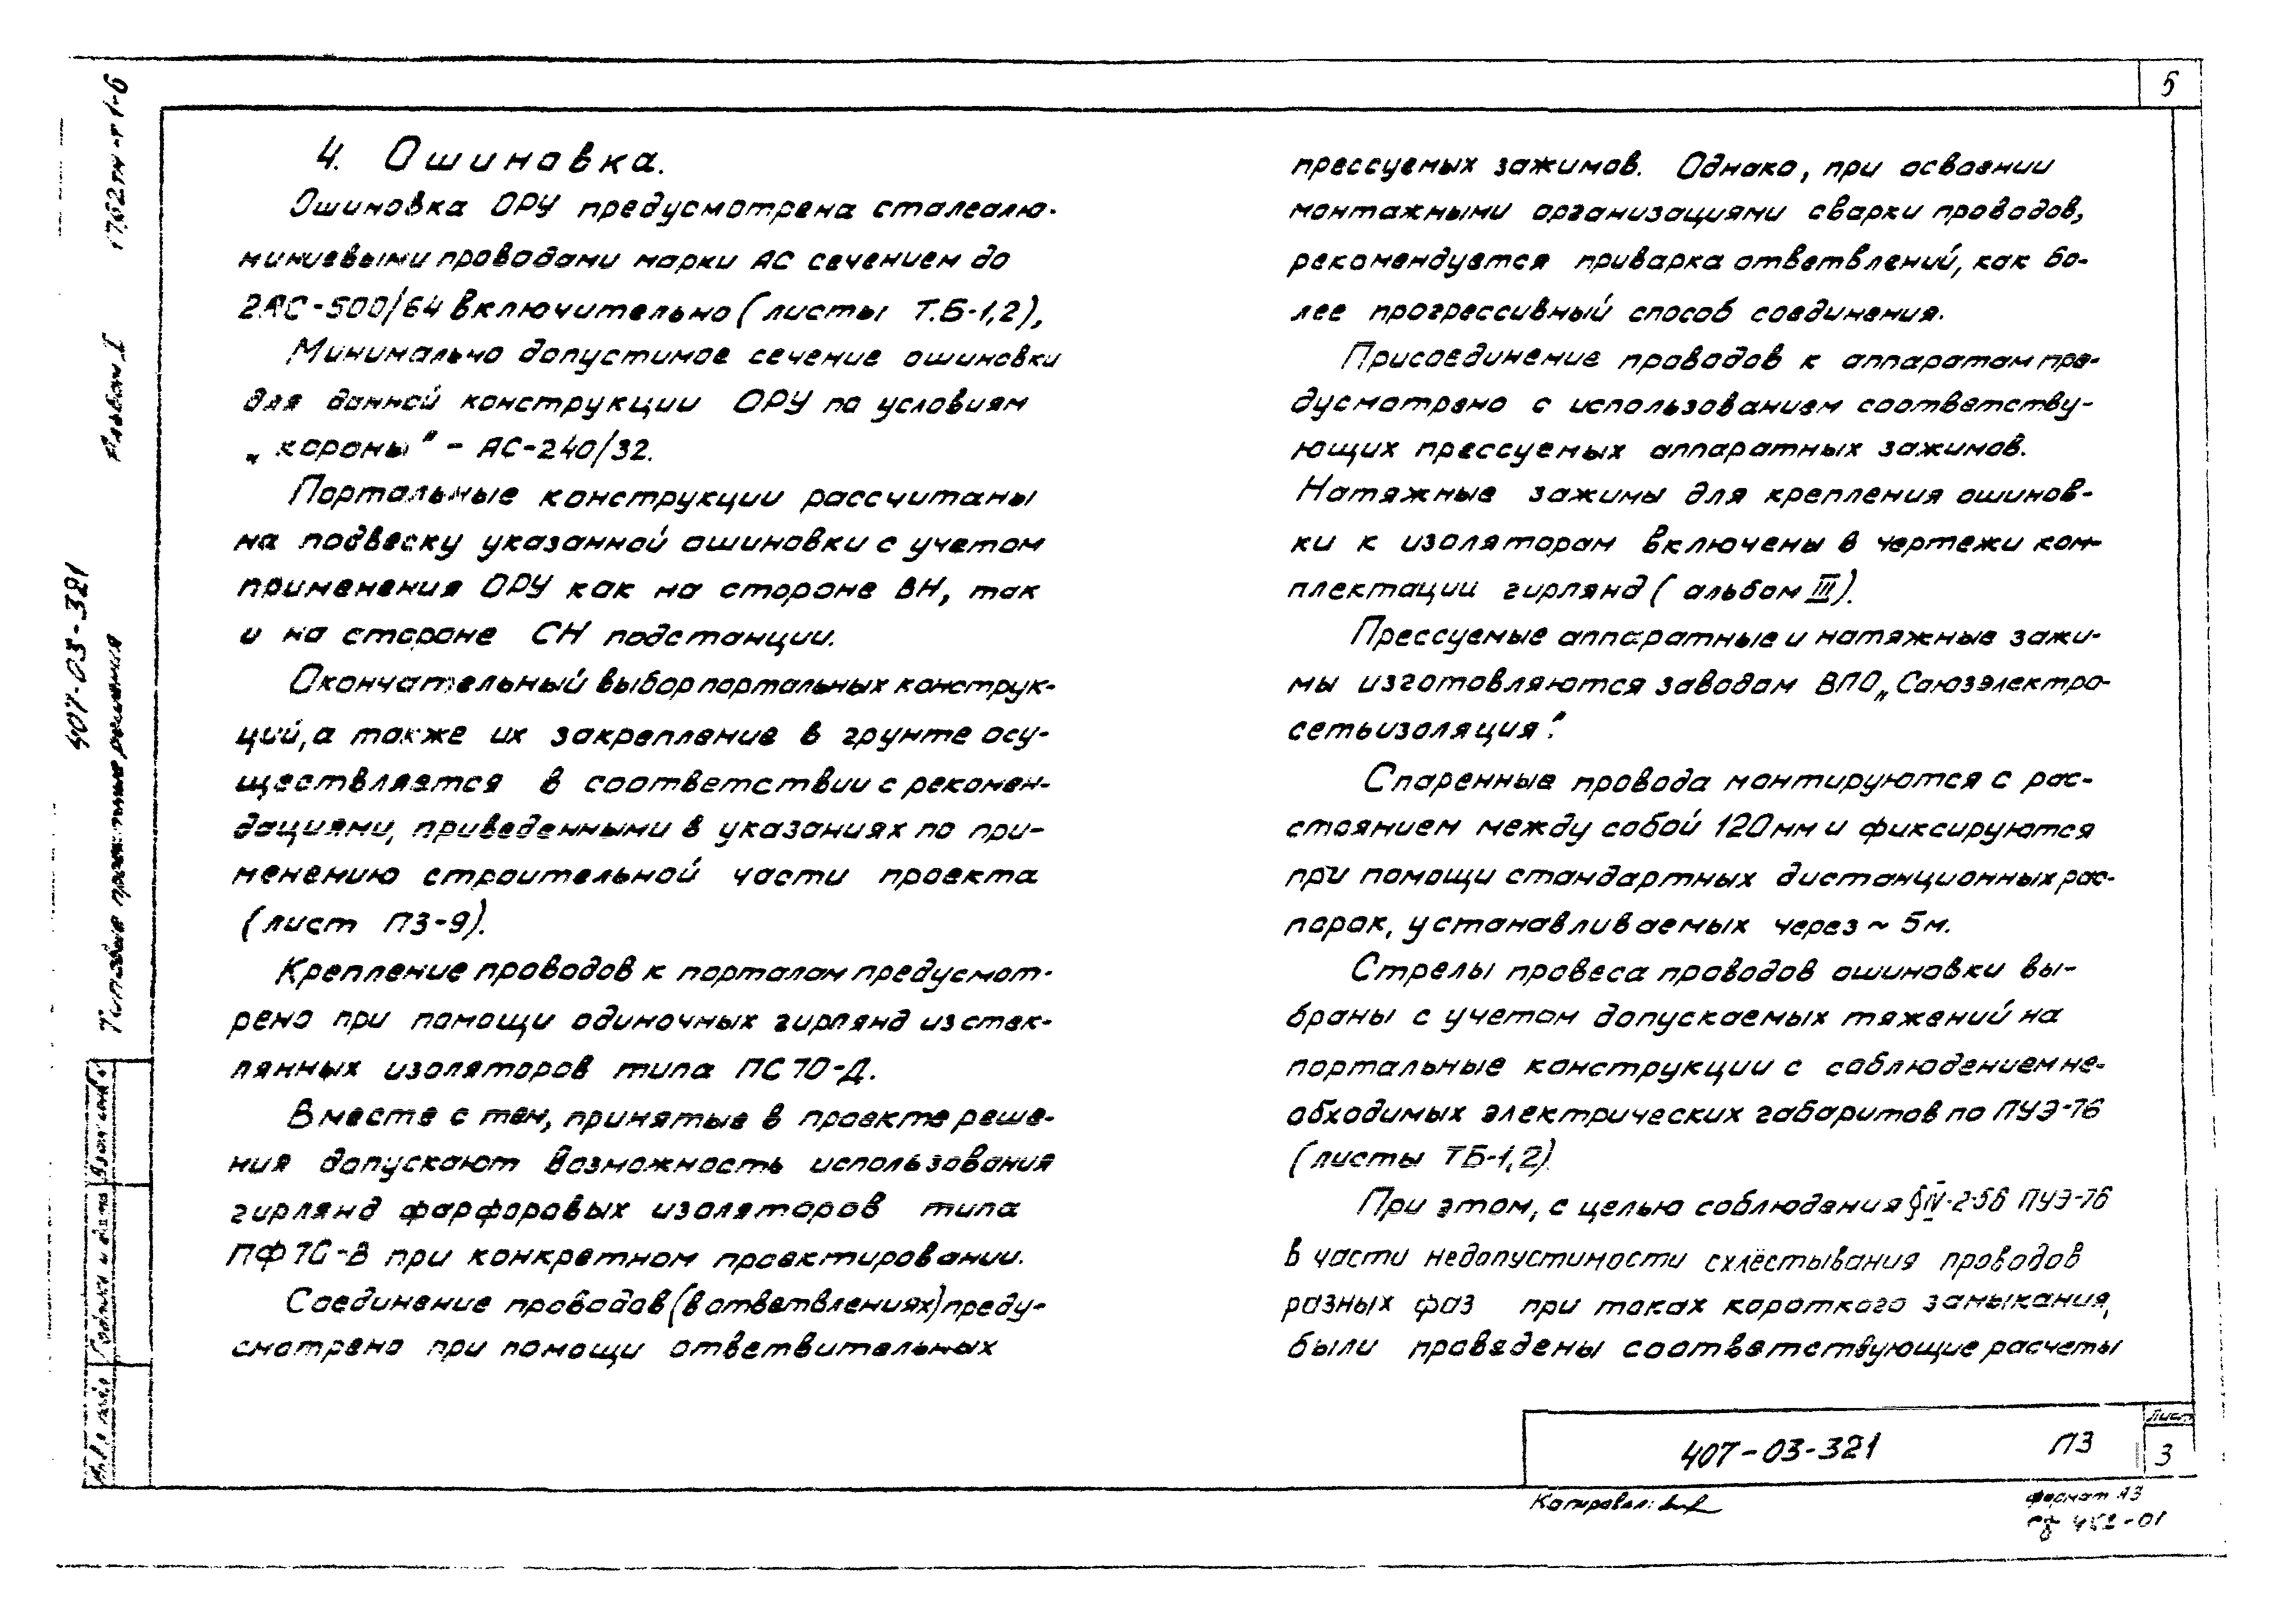 5
4. Ошиновка.
Ошиновка ОРУ предусмотрена сталеалю-
миниевыми проводами марки АС сечением до
2АС-500/64 включительно (листы Т.Б-1,2),
Минимально допустимое сечение ошиновки
для данной конструкции ОРУ по условиям
„короны" - АС-240/32.
Портальные конструкции рассчитаны
на подвеску указанной ошиновки с учетом
применения ОРУ как на стороне ВН, так
и на стороне СН подстанции.
Окончательный выбор портальных конструк-
ций, а также их закрепление в грунте осу-
ществляется в соответствии с рекомен-
дациями, приведенными в указаниях по при-
менению строительной части проекта
(лист ПЗ-9).
Крепление проводов к порталам предусмот-
рено при помощи одиночных гирлянд из стек-
лянных изоляторов типа ПС70-Д.
Вместе с тем, принятые в проекте реше-
ния допускают возможность использования
гирлянд фарфоровых изоляторов типа
ПФ70-В при конкретном проектировании.
Соединение проводов (в ответвлениях) преду-
смотрено при помощи ответвительных
прессуемых зажимов. Однако, при освоении
монтажными организациями сварки проводов,
рекомендуется приварка ответвлений, как бо-
лее прогрессивный способ соединения.
Присоединение проводов к аппаратам пре-
дусмотрено с использованием соответству-
ющих прессуемых аппаратных зажимов.
Натяжные зажимы для крепления ошинов-
ки к изоляторам включены в чертежи ком-
плектации гирлянд (альбом III).
Прессуемые аппаратные и натяжные зажи-
мы изготовляются заводам ВПО „Союзэлектро-
сетьизоляция".
Спаренные провода монтируются с рас-
стоянием между собой 120 мм и фиксируются
при помощи стандартных дистанционных рас-
порок, устанавливаемых через ~ 5м.
Стрелы провеса проводов ошиновки вы-
браны с учетом допускаемых тяжений на
портальные конструкции с соблюдением не-
обходимых электрических габаритов по ПУЭ-76
(листы ТБ-1,2)
При этом, с целью соблюдения § IV-2-56 ПУЭ-76
в части недопустимости схлёстывания проводов
разных фаз при токах короткого замыкания,
были проведены соответствующие расчеты
407-03-321 ПЗ
Лист
3
Копировал:
формат А3
407-03-321
Типовые проектные решения
Альбом I
1762тм-т1-6
Инв.
Подпись и дата
Взам. инв.